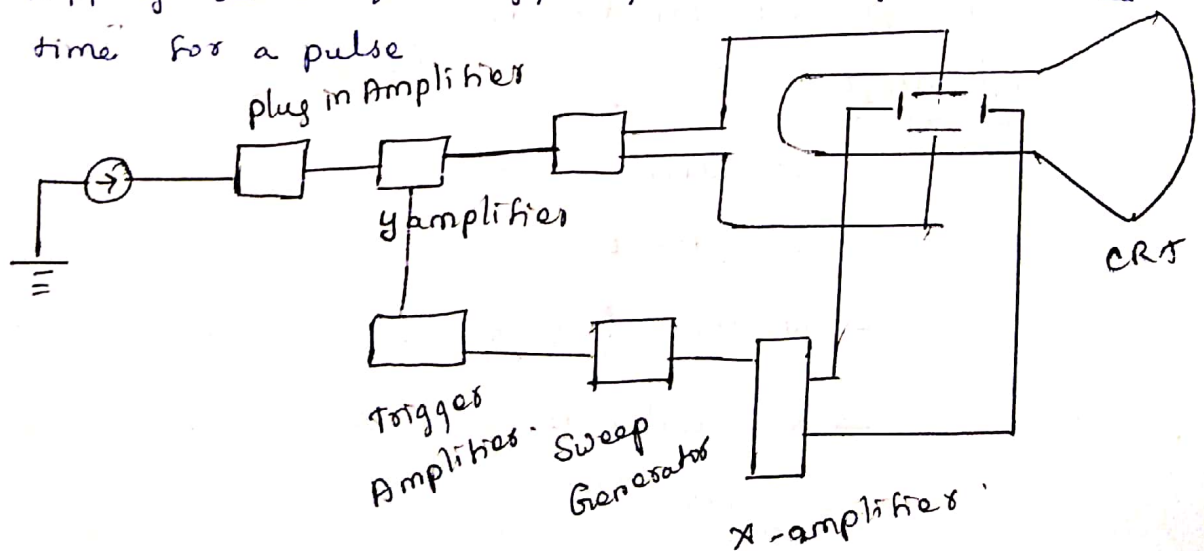 time for a pulse
plug in Amplifier
y amplifier
CRT
Trigger
Amplifier.
Sweep
Generator
X-amplifier.